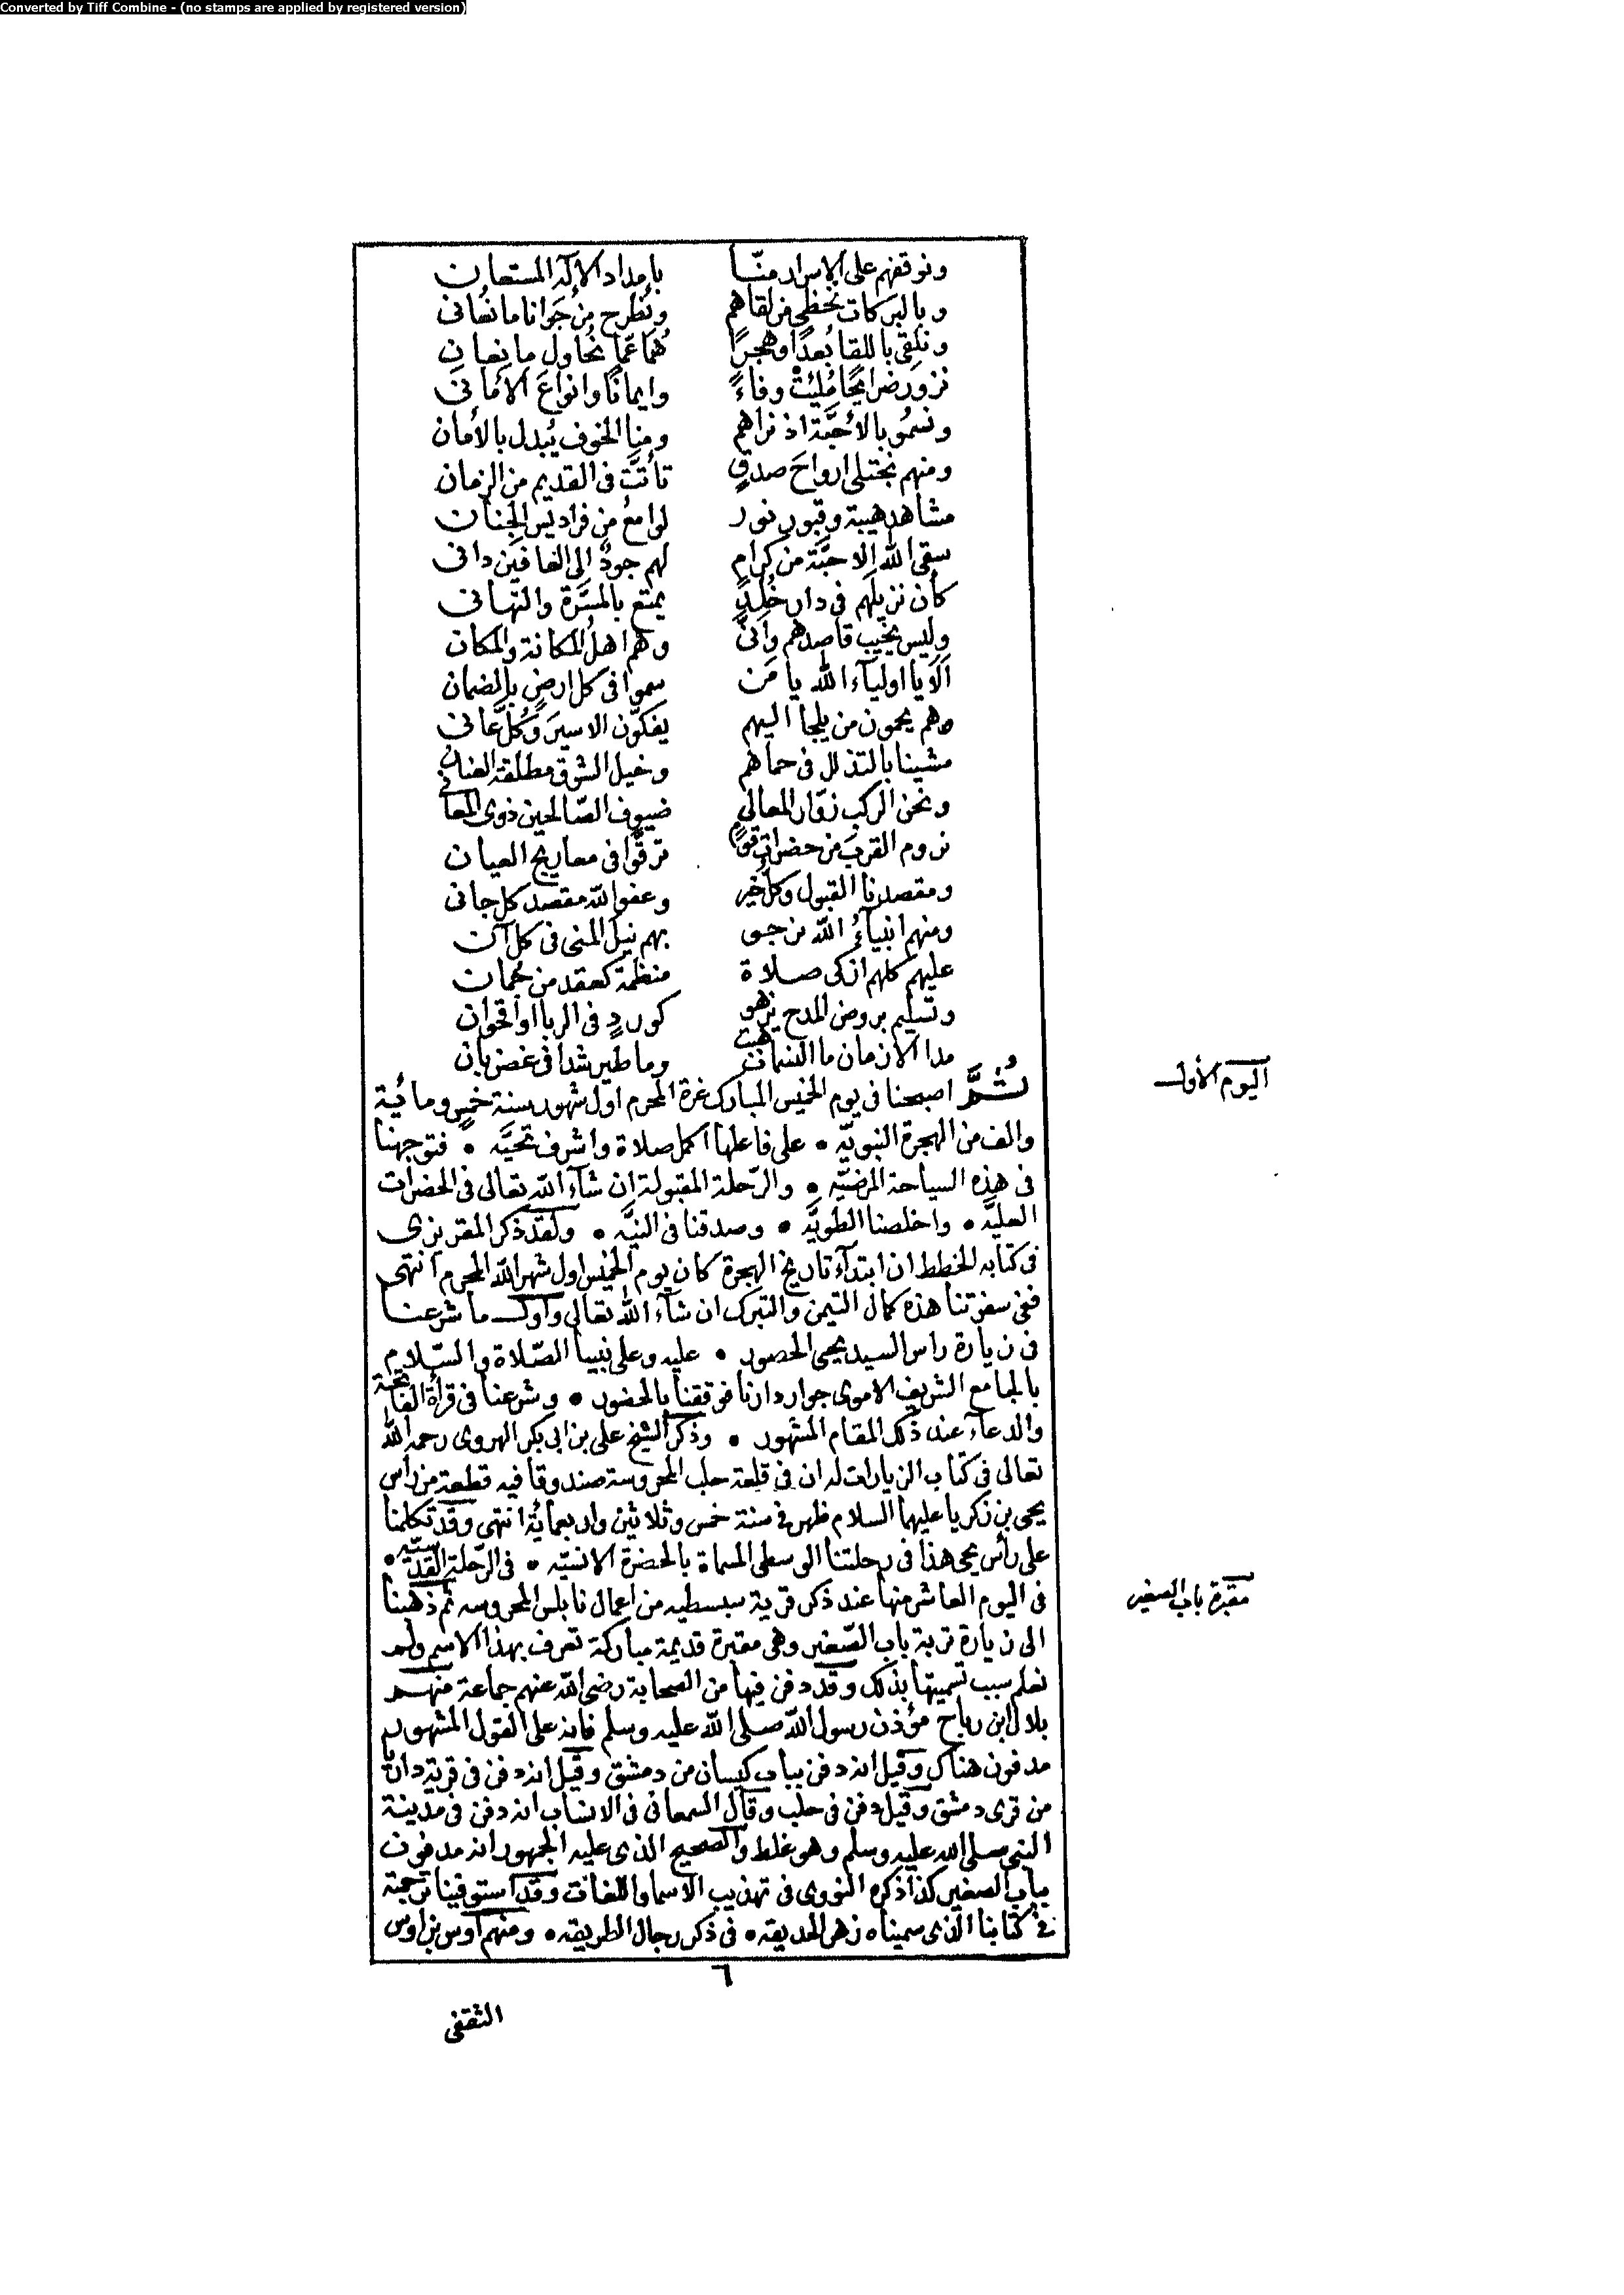 Converted by Tiff Combine - (no stamps are applied by registered version)
ونوقفهم على الاسرار منّا بامداد الاله المستعان
وبالبركات نحظى من لقاهم ونطرح من جوانا ما نعانى
ونلقى باللقا بُعدًا وهجرًا هُما عمّا نحاول مانعان
نزور ضرايحًا مُلِئتْ وفاءً وايمانًا وانواعَ الأمانى
ونسمُو بالأحبَّة اذ نراهم ومنا الخوف يُبدل بالأمان
ومنهم نجتلى ارواحَ صدقٍ تأتَّت فى القديم من الزمان
مشاهد هيبة وقبور نور لوامعُ من فراديس الجنان
سقى الله الاحبَّة من كرام لهم جودٌ الى العافين دانى
كأن نزيلهم فى دار خُلدٍ يمتع بالمسَرَّة والتهانى
وليس يخيب قاصدهم وأنَّى وهم اهلُ المكانة والمكان
ألا يا اولياء الله يا مَن سموا فى كل ارضٍ بالضمان
وهم يحمون من يلجا اليهم يفكّون الاسيرَ وكُلَّ عانى
مشينا بالتذلل فى حماهم وخيل الشوق مطلقة العنان
ونحن الركب زوّار المعالى ضيوف الصّالحين ذوى المعانى
نروم القربَ من حضرات قومٍ ترقَّوا فى معاريج العيان
ومقصدنا القبول وكلّ خير وعفو الله مقصد كل جانى
ومنهم انبياءُ الله نرجو بهم نيل المنى فى كل آن
عليهم كلهم ازكى صلاة منظمة كعقد من جمان
وتسليم بروض المدح يزهو كوردٍ فى الربا او اقحوان
مدا الازمان ما النسمات هبت وما طير شدا فى غصن بان
ثُمَّ اصبحنا فى يوم الخميس المبارك غرة المحرم اول شهور سنة خمس ومائية
اليوم الأول
والف من الهجرة النبويّه • على فاعلها اكمل صلاة واشرف تحيَّه • فتوجهنا
فى هذه السياحة المرضيّه • والرّحلة المقبولة ان شآء الله تعالى فى الحضرات
العليَّه • واخلصنا الطويَّه • وصدقنا فى النيَّه • ولقد ذكر المقريزى
فى كتابه الخطط ان ابتدآء تاريخ الهجرة كان يوم الخميس اول شهر الله المحرم انتهى
ففى سفرتنا هذه كمال التيمن والتبرك ان شآء الله تعالى واول ما شرعنا
فى زيارة راس السيد يحيى الحصور • عليه وعلى نبينا الصّلاة والسّلام
بالجامع الشريف الاموى جوار دارنا فوقفنا بالحضور • وشرعنا فى قرأة الفاتحة
والدعآء عند ذلك المقام المشهور • وذكر الشيخ على بن ابى بكر الهروى رحمه الله
تعالى فى كتاب الزيارات له ان فى قلعة حلب المحروسة صندوقا فيه قطعة من رأس
يحيى بن زكريا عليهما السلام ظهر فى سنة خمس وثلاثين واربعماية انتهى وقد تكلمنا
على رأس يحيى هذا فى رحلتنا الوسطى المسماة بالحضرة الانسيّه • فى الرّحلة القدسيّه •
فى اليوم العاشر منها عند ذكر قرية سبسطيه من اعمال نابلس المحروسه ثم ذهبنا
مقبرة باب الصغير
الى زيارة تربة باب الصّغير وهى مقبرة قديمة مباركة تعرف بهذا الاسم ولم
نعلم سبب تسميتها بذلك وقد دفن فيها من الصحابة رضى الله عنهم جماعة منهم
بلال ابن رباح مؤذن رسول الله صلى الله عليه وسلم فانه على القول المشهور
مدفون هناك وقيل انه دفن بباب كيسان من دمشق وقيل انه دفن فى قرية داريا
من قرى دمشق وقيل دفن فى حلب وقال السمعانى فى الانساب انه دفن فى مدينة
النبى صلى الله عليه وسلم وهو غلط والصحيح الذى عليه الجمهور انه مدفون
بباب الصغير كذا ذكره النووى فى تهذيب الاسما واللغات وقد استوفينا ترجمته
فى كتابنا الذى سميناه زهر الحديقه • فى ذكر رجال الطريقه • ومنهم اوس بن اوس
٦
الثقفى